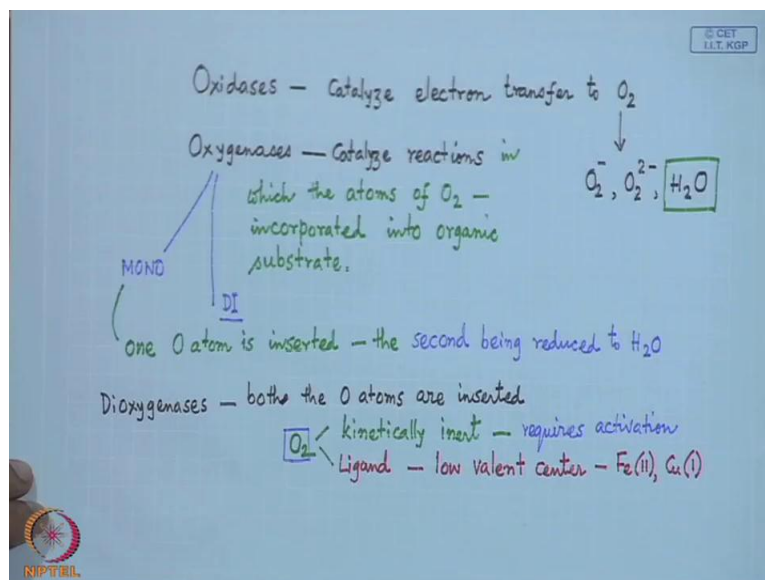 © CET
I.I.T. KGP
Oxidases – Catalyze electron transfer to O₂
Oxygenases – Catalyze reactions in
which the atoms of O₂ –
incorporated into organic
substrate.
O₂⁻, O₂²⁻, H₂O
MONO
DI
one O atom is inserted – the second being reduced to H₂O
Dioxygenases – both the O atoms are inserted
O₂
kinetically inert – requires activation
Ligand – low valent center – Fe(II), Cu(I)
NPTEL